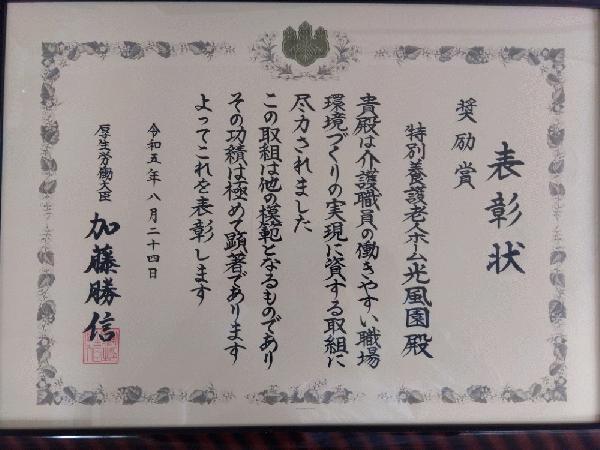 表彰状
奨励賞
特別養護老人ホーム光風園殿
貴殿は介護職員の働きやすい職場
環境づくりの実現に資する取組に
尽力されました
この取組は他の模範となるものであり
その功績は極めて顕著であります
よってこれを表彰します
令和五年八月二十四日
厚生労働大臣
加藤勝信